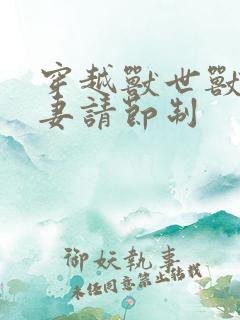 穿越獸世獸
妻請節制
御妖執事
未經同意禁止轉載